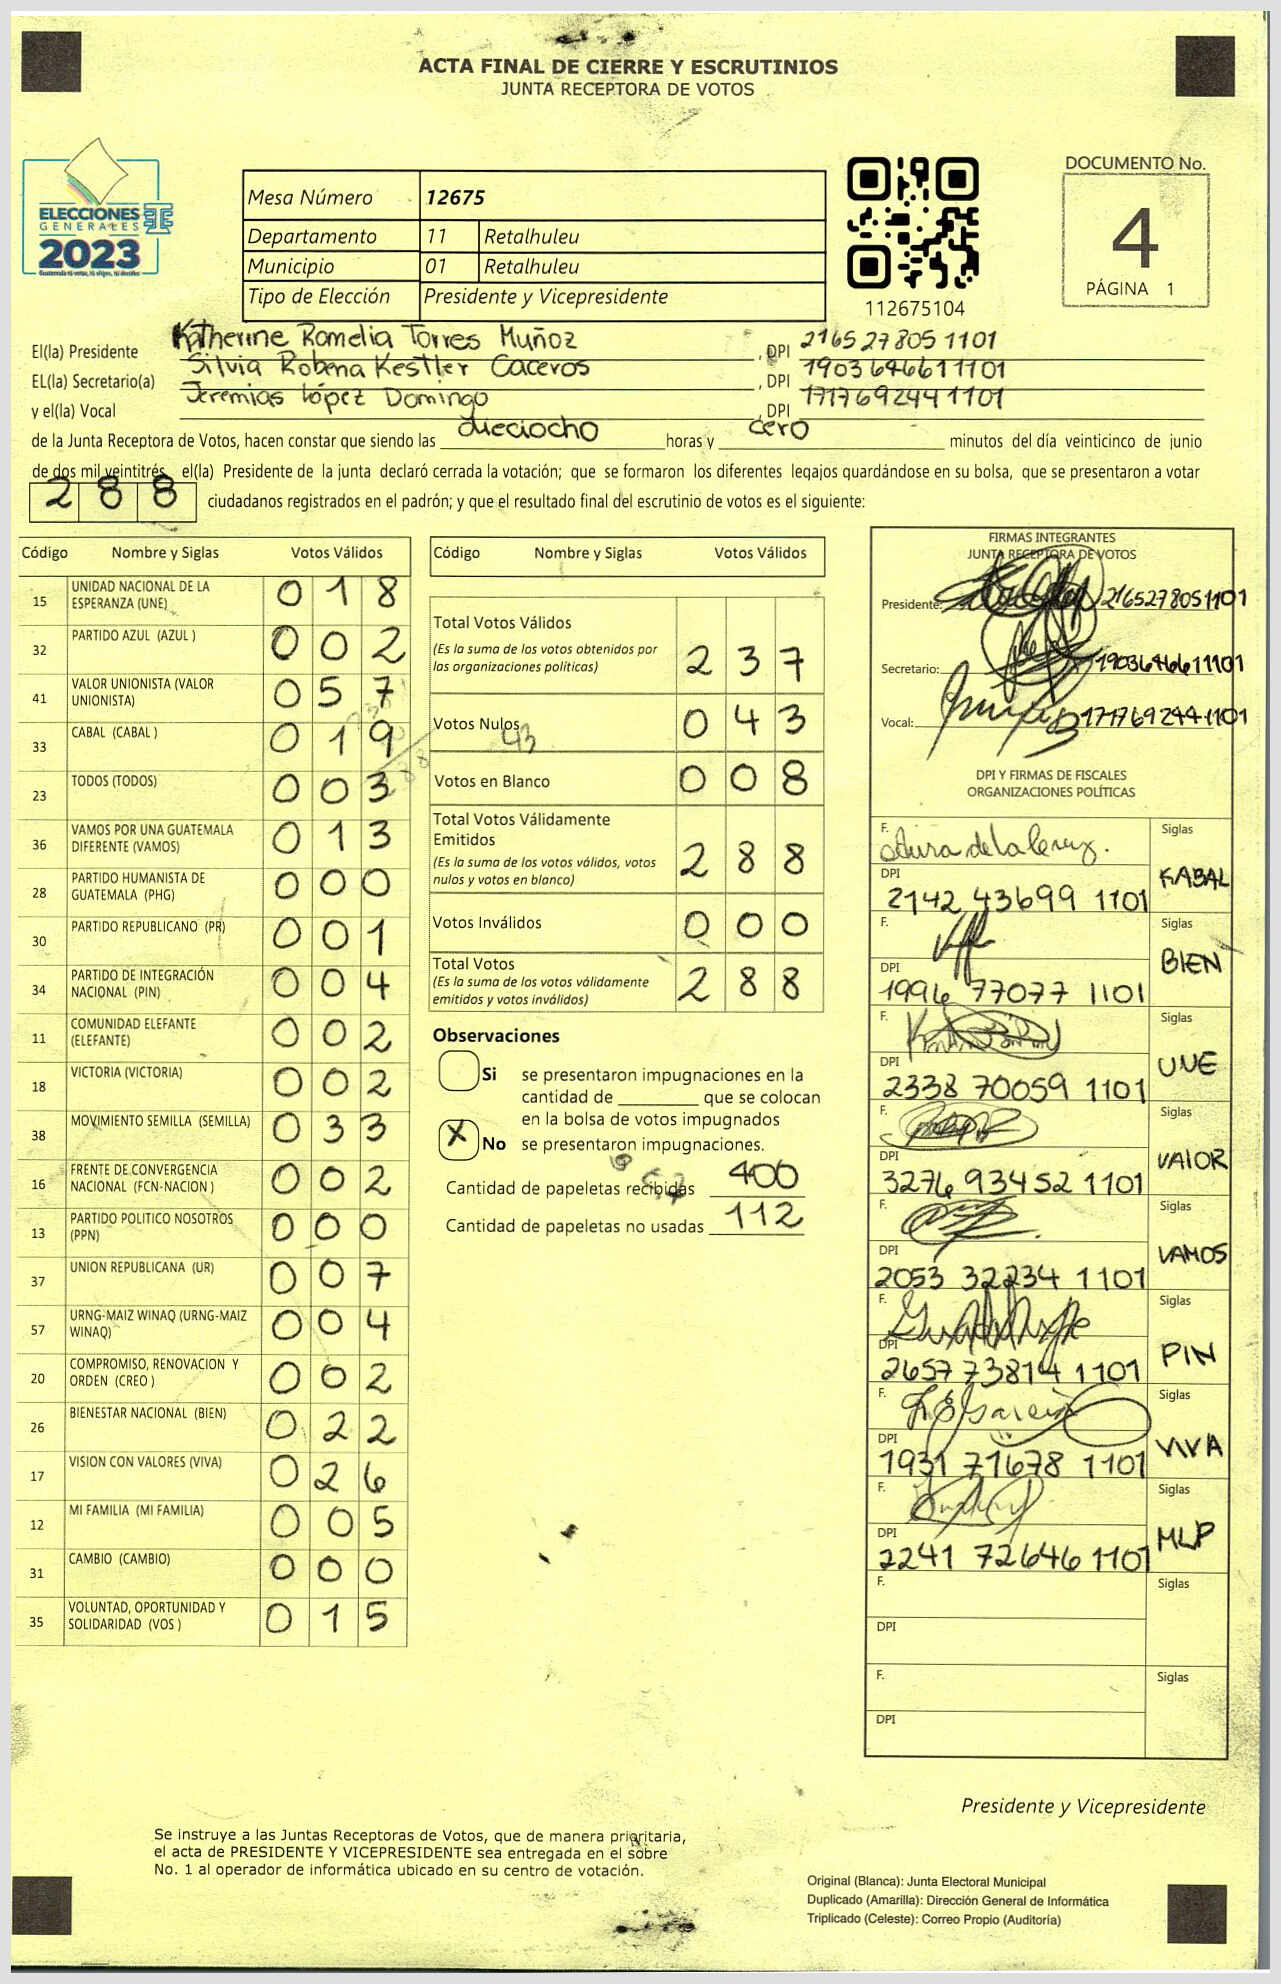 ACTA FINAL DE CIERRE Y ESCRUTINIOS
JUNTA RECEPTORA DE VOTOS
ELECCIONES
GENERALES
2023
Mesa Número 12675
Departamento 11 Retalhuleu
Municipio 01 Retalhuleu
Tipo de Elección Presidente y Vicepresidente
112675104
DOCUMENTO No.
4
PÁGINA 1
El(la) Presidente Katherine Romelia Torres Muñoz , DPI 2165278051101
EL(la) Secretario(a) Silvia Robena Kestler Caceros , DPI 1903646611101
y el(la) Vocal Jeremias López Domingo , DPI 1717692441101
de la Junta Receptora de Votos, hacen constar que siendo las dieciocho horas y cero minutos del día veinticinco de junio
de dos mil veintitrés el(la) Presidente de la junta declaró cerrada la votación; que se formaron los diferentes legajos guardándose en su bolsa, que se presentaron a votar
288 ciudadanos registrados en el padrón; y que el resultado final del escrutinio de votos es el siguiente:
Código Nombre y Siglas Votos Válidos
15 UNIDAD NACIONAL DE LA ESPERANZA (UNE) 018
32 PARTIDO AZUL (AZUL ) 002
41 VALOR UNIONISTA (VALOR UNIONISTA) 057
33 CABAL (CABAL ) 019
23 TODOS (TODOS) 003
36 VAMOS POR UNA GUATEMALA DIFERENTE (VAMOS) 013
28 PARTIDO HUMANISTA DE GUATEMALA (PHG) 000
30 PARTIDO REPUBLICANO (PR) 001
34 PARTIDO DE INTEGRACIÓN NACIONAL (PIN) 004
11 COMUNIDAD ELEFANTE (ELEFANTE) 002
18 VICTORIA (VICTORIA) 002
38 MOVIMIENTO SEMILLA (SEMILLA) 033
16 FRENTE DE CONVERGENCIA NACIONAL (FCN-NACION ) 002
13 PARTIDO POLITICO NOSOTROS (PPN) 000
37 UNION REPUBLICANA (UR) 007
57 URNG-MAIZ WINAQ (URNG-MAIZ WINAQ) 004
20 COMPROMISO, RENOVACION Y ORDEN (CREO ) 002
26 BIENESTAR NACIONAL (BIEN) 022
17 VISION CON VALORES (VIVA) 026
12 MI FAMILIA (MI FAMILIA) 005
31 CAMBIO (CAMBIO) 000
35 VOLUNTAD, OPORTUNIDAD Y SOLIDARIDAD (VOS ) 015
Código Nombre y Siglas Votos Válidos
Total Votos Válidos
(Es la suma de los votos obtenidos por
las organizaciones políticas) 237
Votos Nulos 043
43
Votos en Blanco 008
Total Votos Válidamente
Emitidos
(Es la suma de los votos válidos, votos
nulos y votos en blanco) 288
Votos Inválidos 000
Total Votos
(Es la suma de los votos válidamente
emitidos y votos inválidos) 288
Observaciones
Si se presentaron impugnaciones en la
cantidad de ________ que se colocan
en la bolsa de votos impugnados
X No se presentaron impugnaciones.
Cantidad de papeletas recibidas 400
Cantidad de papeletas no usadas 112
FIRMAS INTEGRANTES
JUNTA RECEPTORA DE VOTOS
Presidente: 2165278051101
Secretario: 1903646611101
Vocal: 1717692441101
DPI Y FIRMAS DE FISCALES
ORGANIZACIONES POLÍTICAS
F. Siglas
DPI 2142 43699 1101 KABAL
F. Siglas
DPI 1996 77077 1101 BIEN
F. Siglas
DPI 2338 70059 1101 UNE
F. Siglas
DPI 3276 93452 1101 VAlOR
F. Siglas
DPI 2053 32234 1101 VAMOS
F. Siglas
DPI 2657 73814 1101 PIN
F. Siglas
DPI 1931 71678 1101 VIVA
F. Siglas
DPI 2241 72646 1101 MLP
F. Siglas
DPI
F. Siglas
DPI
Presidente y Vicepresidente
Se instruye a las Juntas Receptoras de Votos, que de manera prioritaria,
el acta de PRESIDENTE Y VICEPRESIDENTE sea entregada en el sobre
No. 1 al operador de informática ubicado en su centro de votación.
Original (Blanca): Junta Electoral Municipal
Duplicado (Amarilla): Dirección General de Informática
Triplicado (Celeste): Correo Propio (Auditoría)